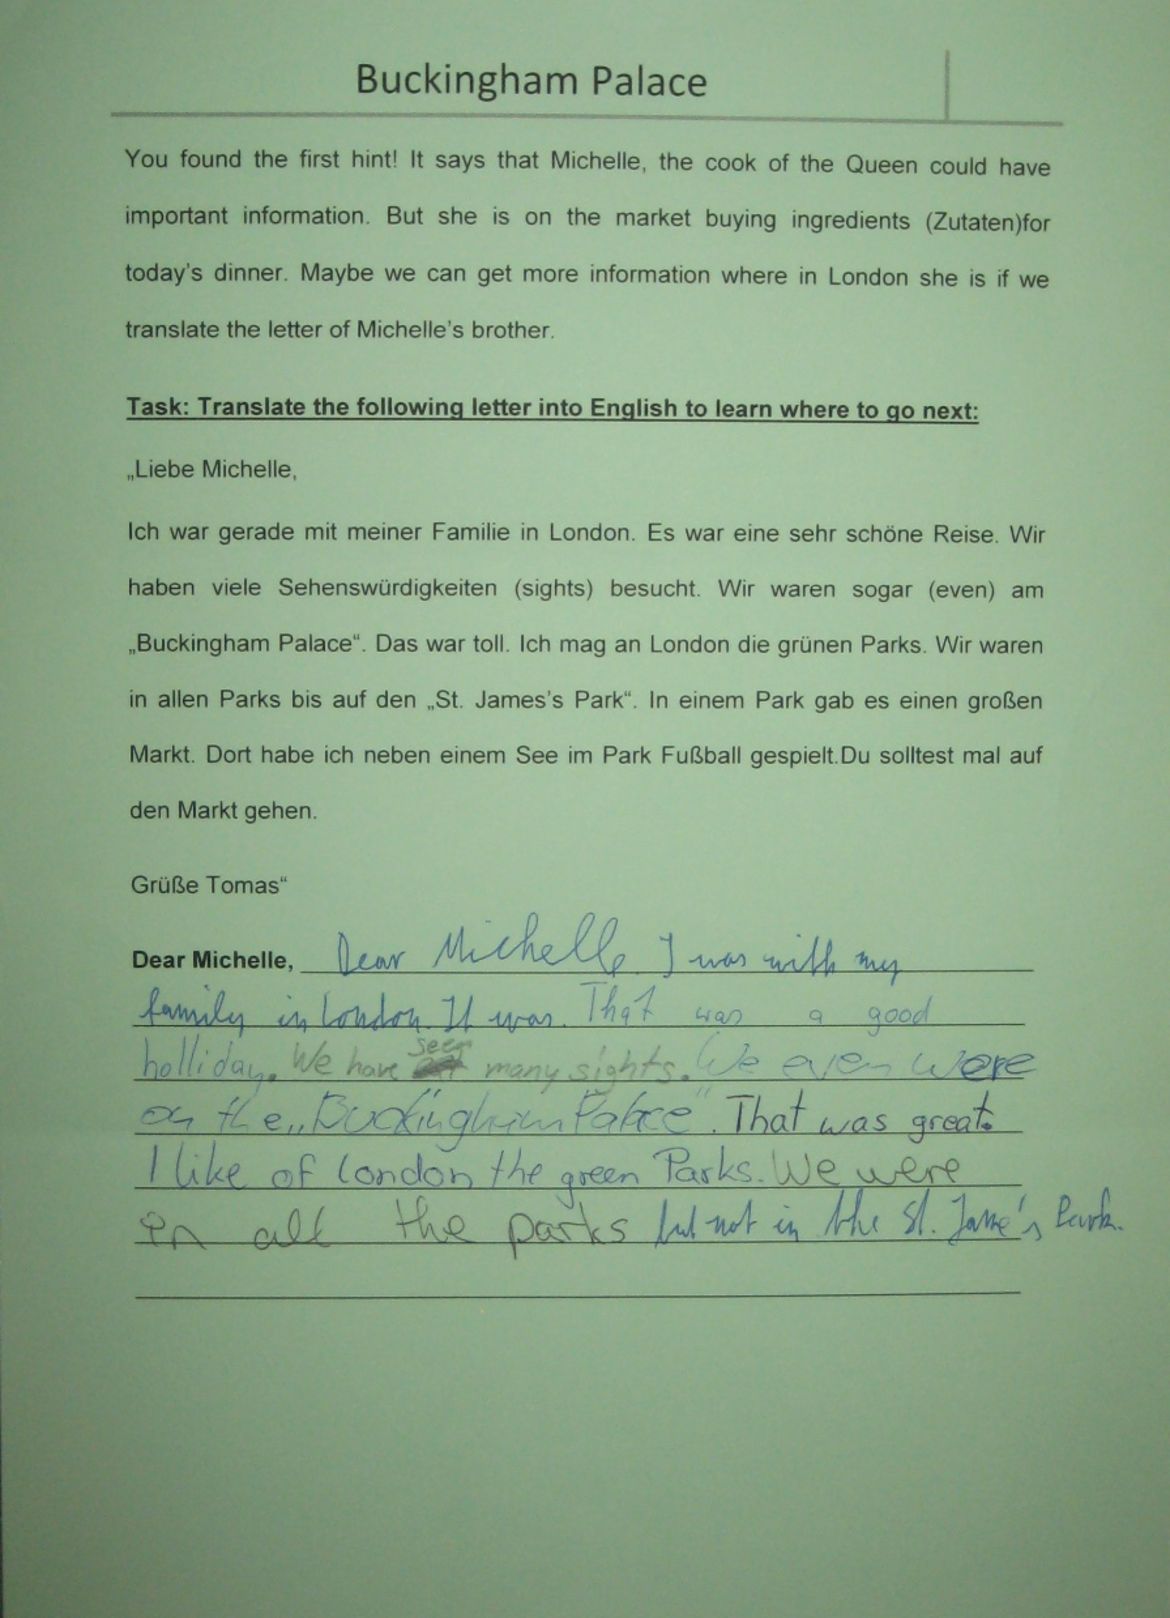 Buckingham Palace
You found the first hint! It says that Michelle, the cook of the Queen could have
important information. But she is on the market buying ingredients (Zutaten)for
today's dinner. Maybe we can get more information where in London she is if we
translate the letter of Michelle's brother.
Task: Translate the following letter into English to learn where to go next:
„Liebe Michelle,
Ich war gerade mit meiner Familie in London. Es war eine sehr schöne Reise. Wir
haben viele Sehenswürdigkeiten (sights) besucht. Wir waren sogar (even) am
„Buckingham Palace“. Das war toll. Ich mag an London die grünen Parks. Wir waren
in allen Parks bis auf den „St. James's Park“. In einem Park gab es einen großen
Markt. Dort habe ich neben einem See im Park Fußball gespielt.Du solltest mal auf
den Markt gehen.
Grüße Tomas“
Dear Michelle, Dear Michelle. I was with my
family in London. It was. That was a good
holliday. We have seen many sights. We even were
on the „Buckingham Palace“. That was great.
I like of London the green Parks. We were
in all the parks but not in the St. Jame's Park.